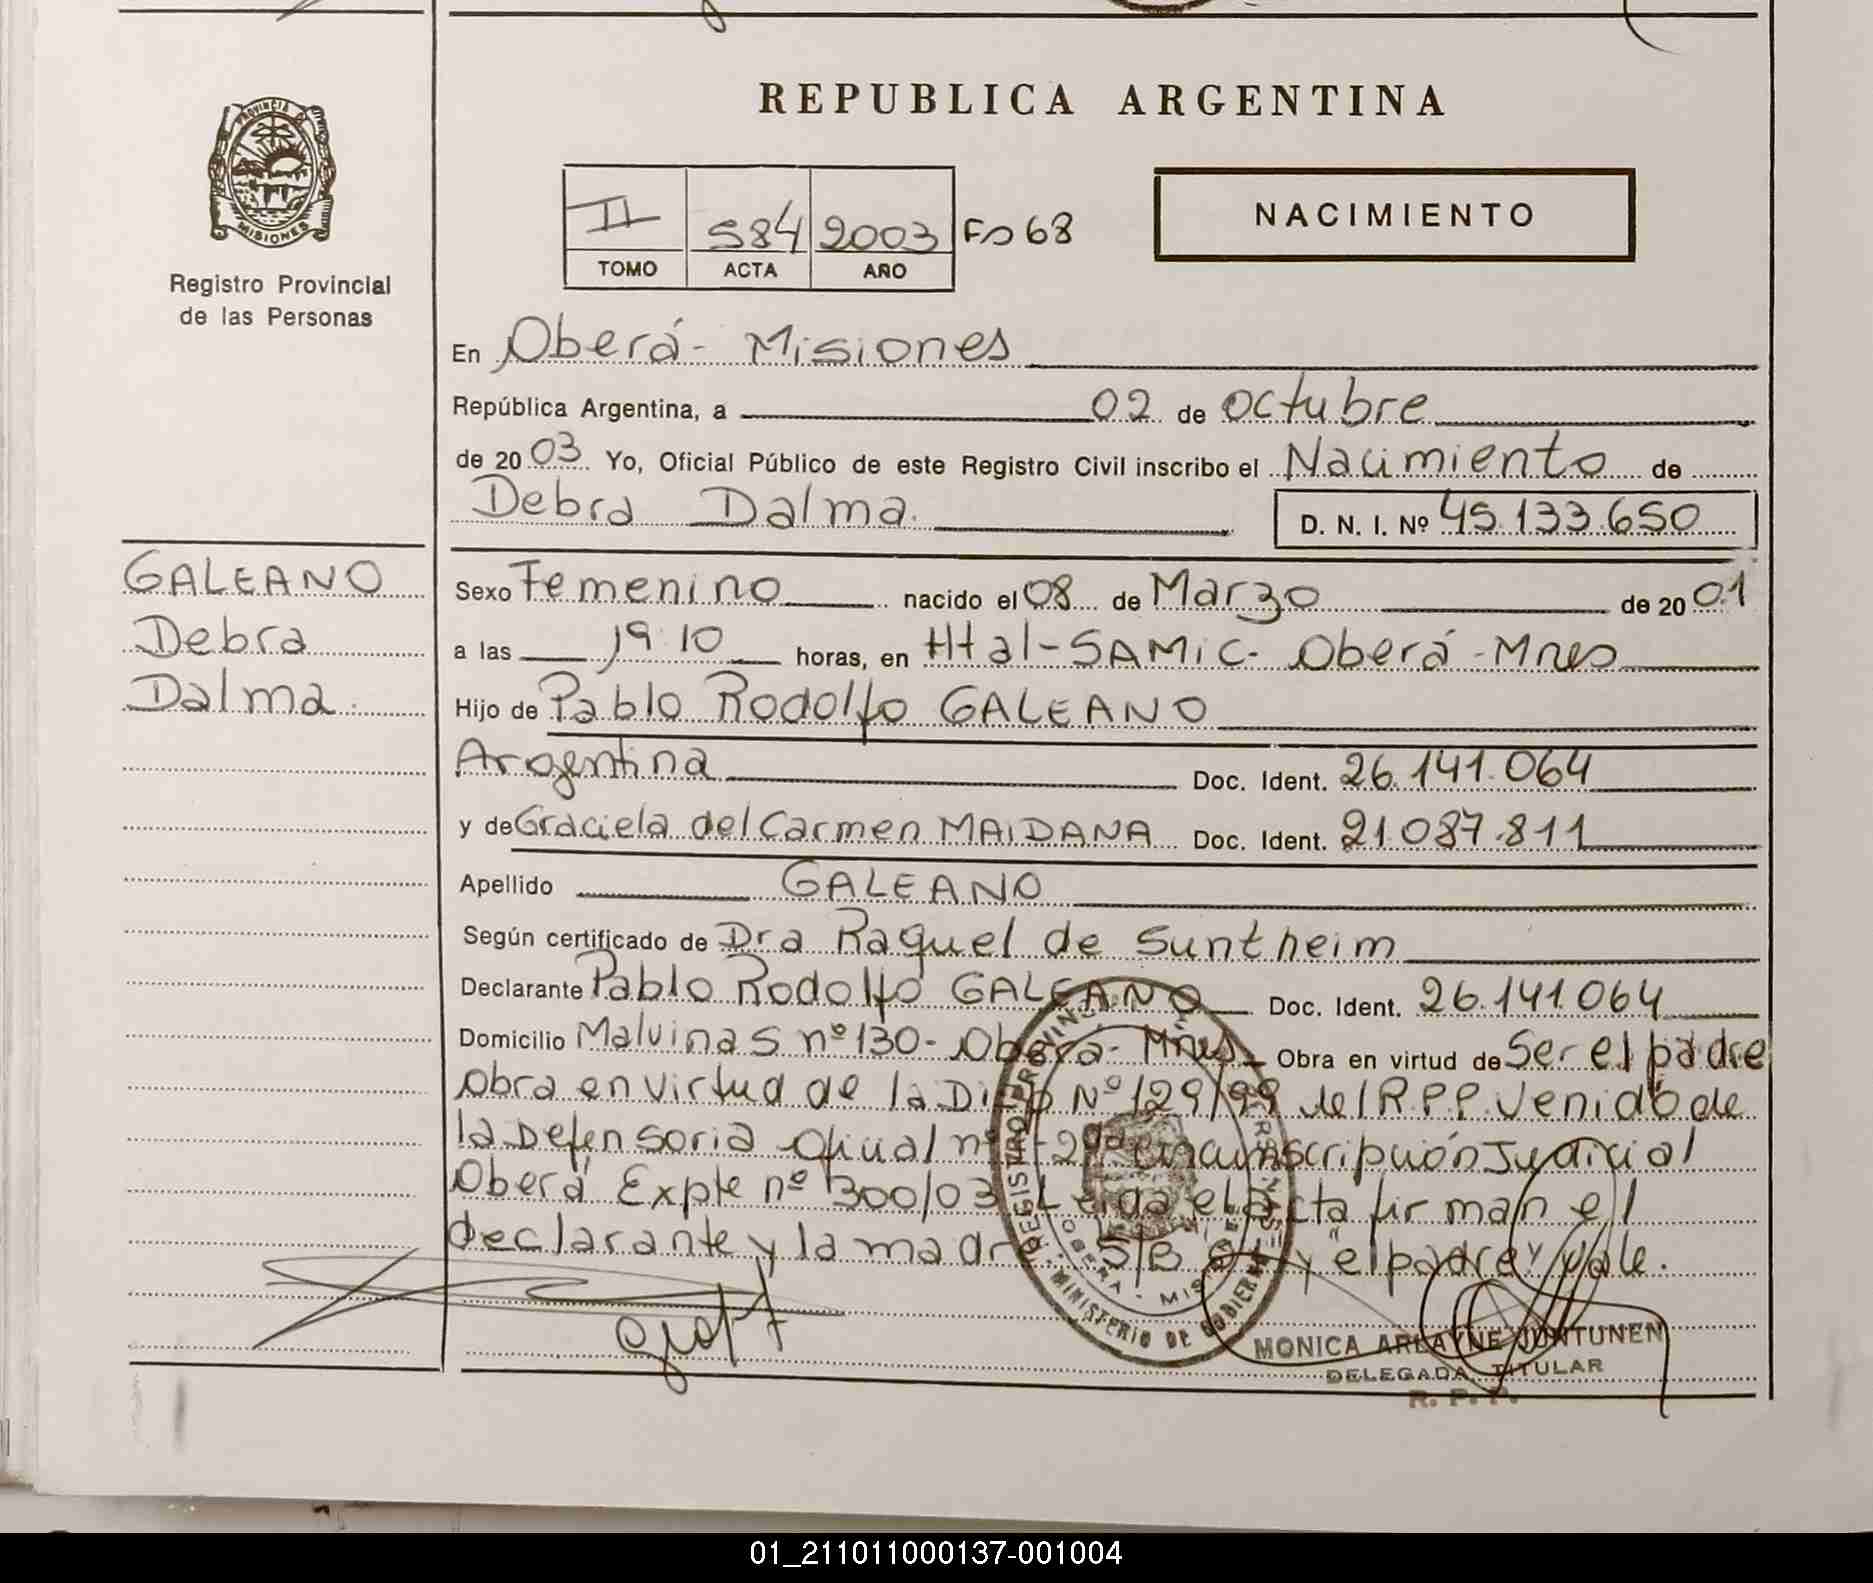 REPUBLICA ARGENTINA
PROVINCIA DE
MISIONES
Registro Provincial
de las Personas
II 584 2003 Fo 68
TOMO ACTA AÑO
NACIMIENTO
En Oberá - Misiones
República Argentina, a 02 de octubre
de 2003 Yo, Oficial Público de este Registro Civil inscribo el Nacimiento de
Debra Dalma.
D. N. I. Nº 45.133.650
GALEANO
Debra
Dalma.
Sexo Femenino nacido el 08 de Marzo de 2001
a las 19:10 horas, en Htal-SAMIC- Oberá - Mnes
Hijo de Pablo Rodolfo GALEANO
Argentina Doc. Ident. 26.141.064
y de Graciela del Carmen MAIDANA Doc. Ident. 21.087.811
Apellido GALEANO
Según certificado de Dra Raquel de Suntheim
Declarante Pablo Rodolfo GALEANO Doc. Ident. 26.141.064
Domicilio Malvinas nº 130 - Oberá - Mnes Obra en virtud de Ser el padre
Obra en virtud de la Disp Nº 129/99 del R.P.P. Venido de
la Defensoria Oficial nº circunscripción Judicial
Oberá Expte nº 300/03. Leida el acta firman el
declarante y la madre. S/B y "el padre" vale.
REGISTRO PROVINCIAL
OBERA - MISIONES
MINISTERIO DE GOBIERNO
MONICA ARLAYNE JUNTUNEN
DELEGADA TITULAR
R. P. P.
01_211011000137-001004